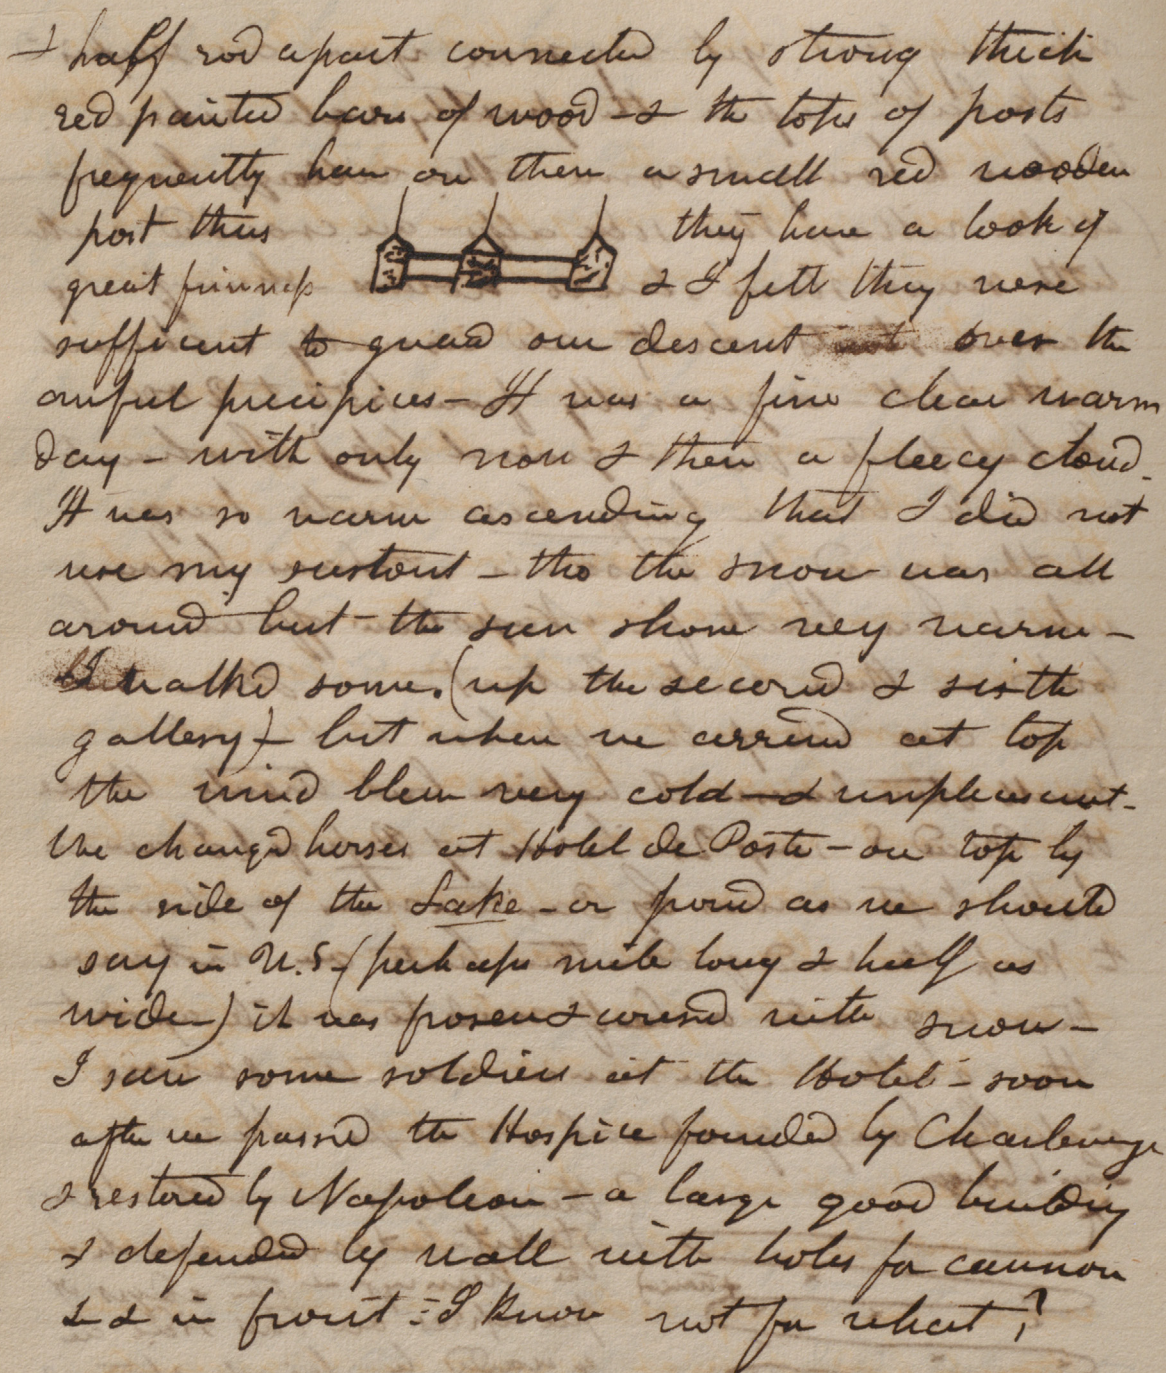 & half rod apart connected by strong thick
red painted bars of wood - & the tops of posts
frequently have on them a small red wooden
post thus they have a look of
great firmness & I felt they were
sufficient to guard our descent over the
awful precipices - It was a fine clear warm
day - with only now & then a fleecy cloud -
It was so warm ascending that I did not
use my surtout - tho the snow was all
around but the sun shone very warm -
I walked some (up the second & sixth
gallery) - but when we arrived at top
the wind blew very cold - & unpleasant -
We changd horses at Hotel de Poste - on top by
the side of the Lake - or pond as we should
say in U.S - (perhaps mile long & half as
wide -) it was frozen & coverd with snow -
I saw some soldiers at the Hotel - soon
after we passd the Hospice founded by Charlemagne
& restored by Napoleon - a large good building
& defended by wall with holes for cannon
& & in front - I know not for what?